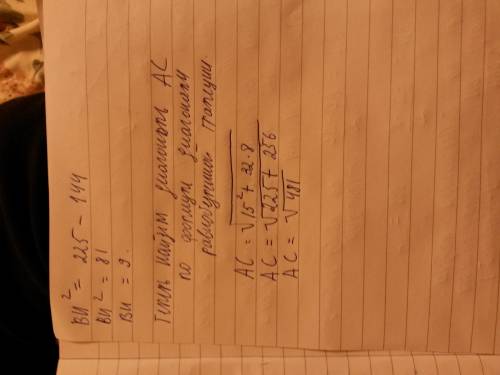 BH² = 225 - 144
BH² = 81
BH = 9.
Теперь найдём диагональ AC
по формуле диагонали
равнобедренной трапеции.
AC = √15² + 32·8
AC = √225 + 256
AC = √481